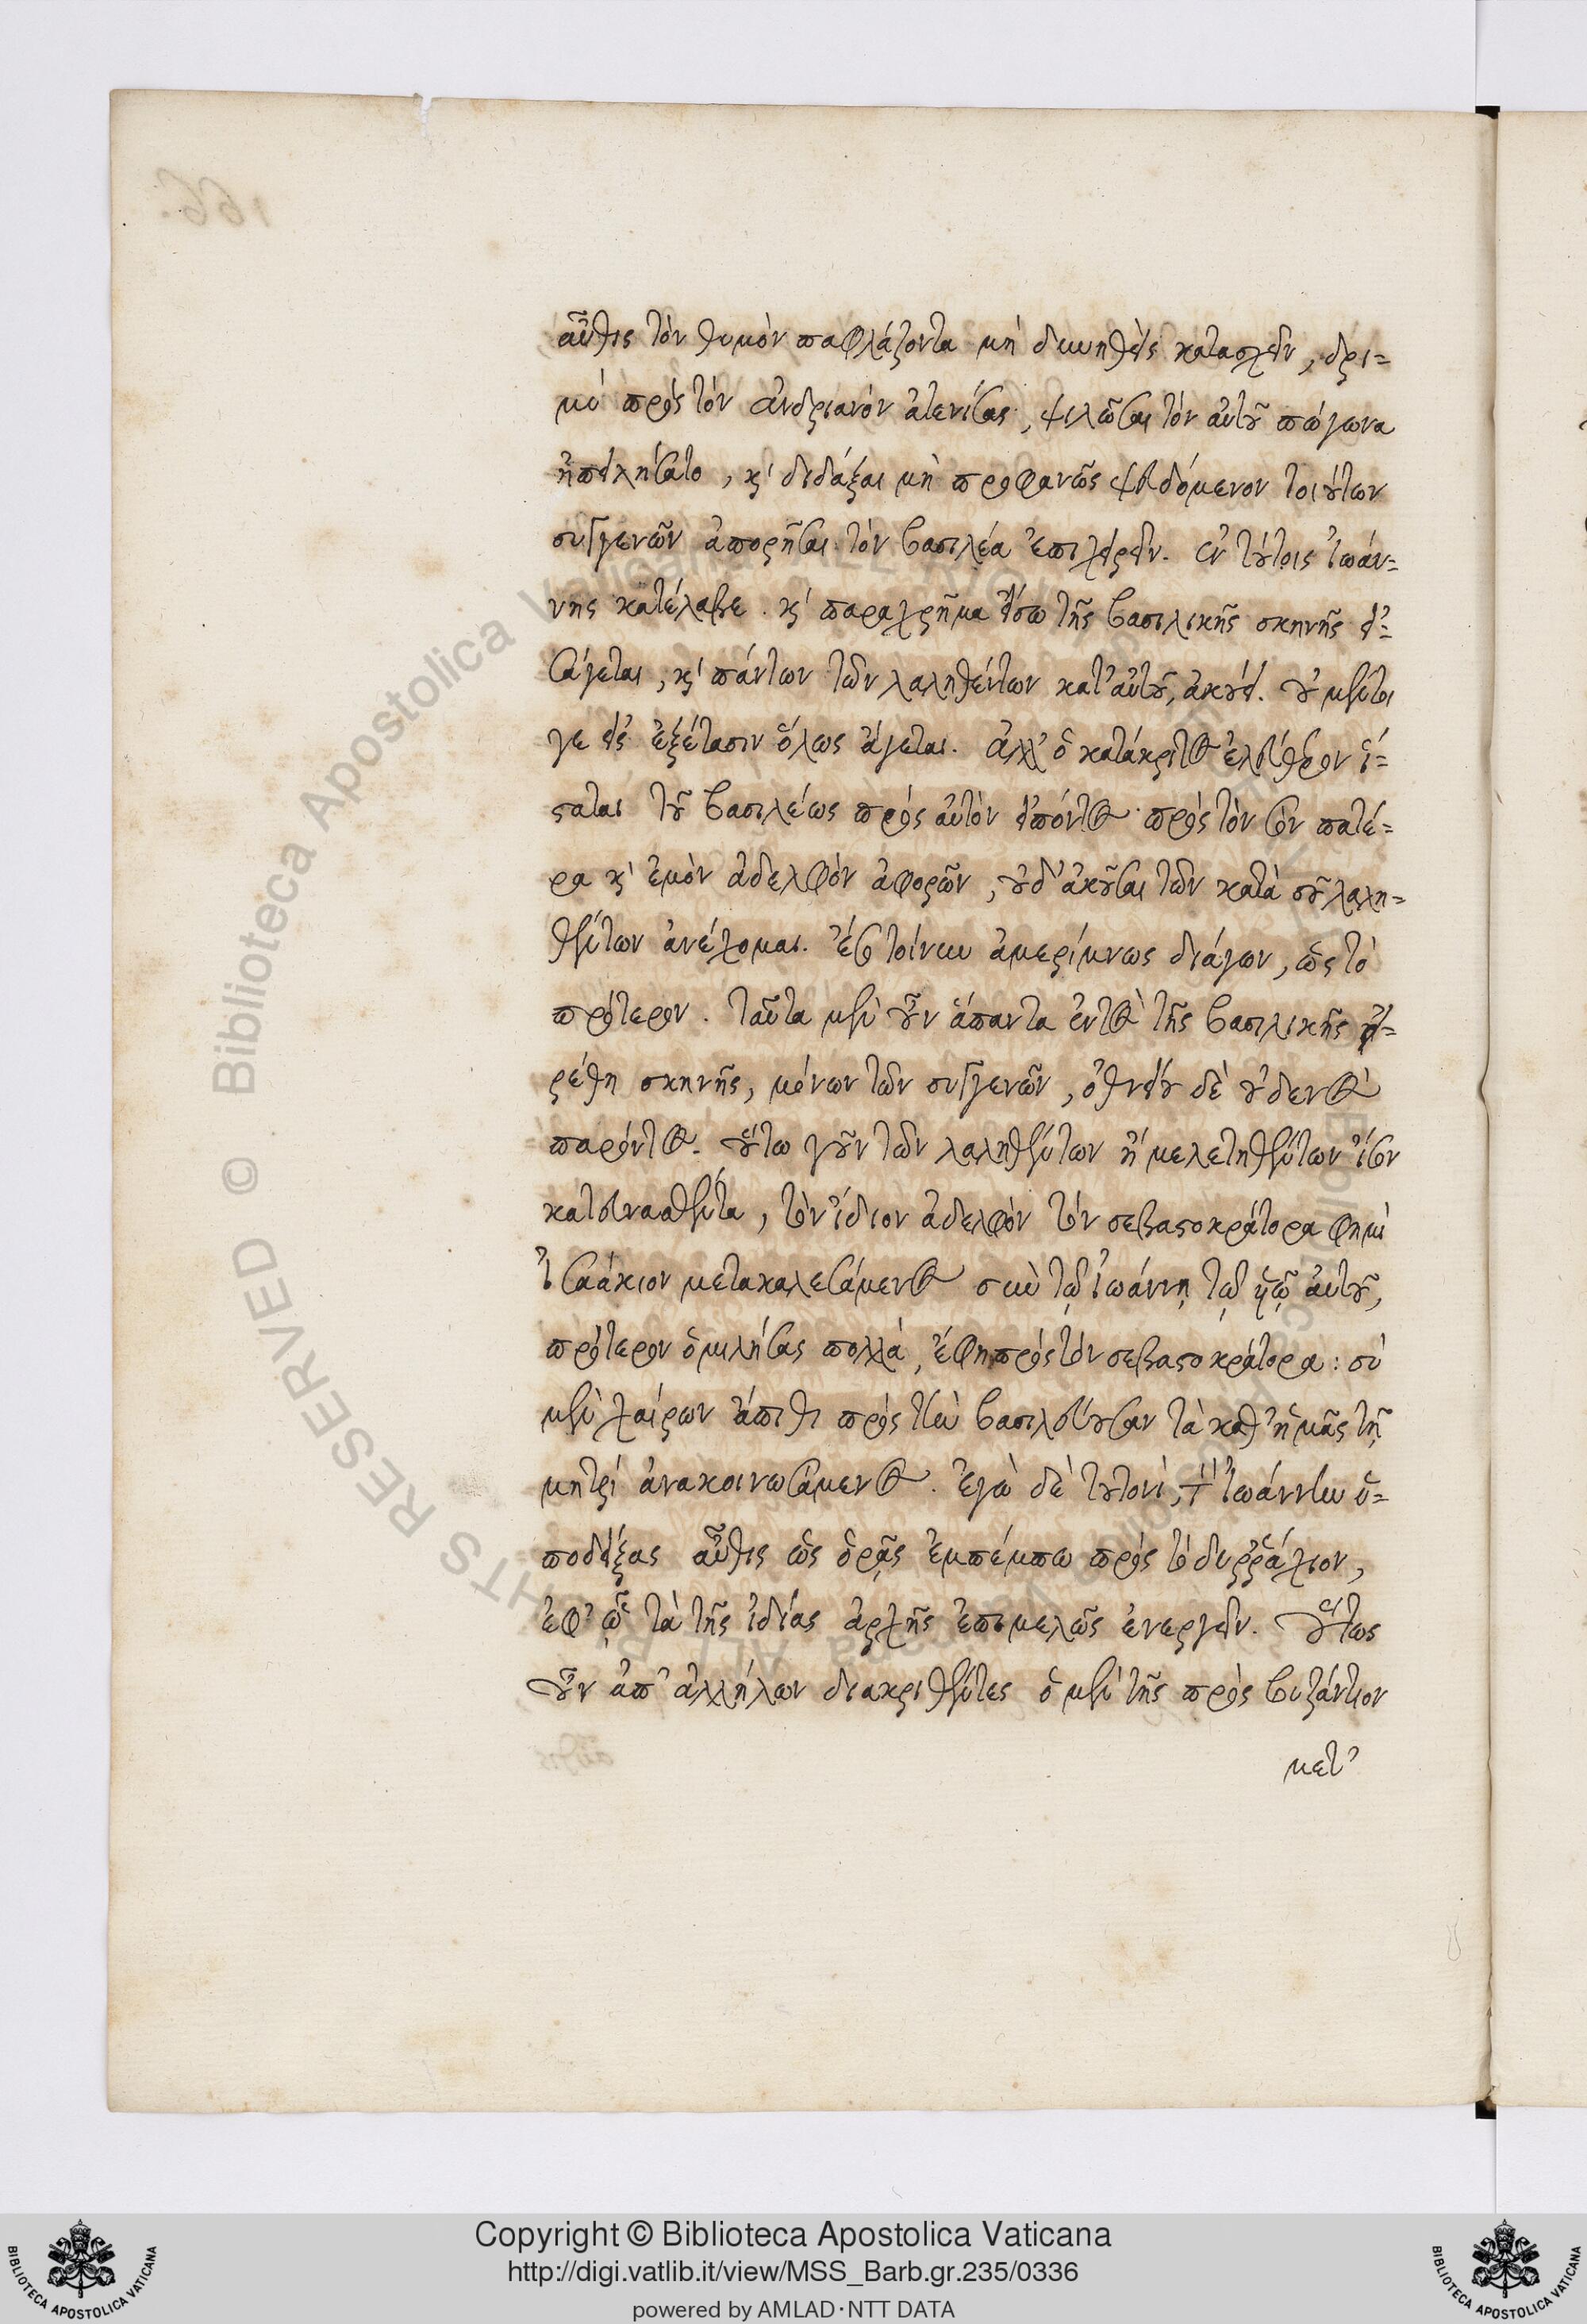 αὖθις τὸν θυμὸν παφλάζοντα μὴ δυνηθεὶς κατασχεῖν, δρι=
μὺ πρὸς τὸν ἀνδριανὸν ἀτενίσας, ψιλῶσαι τὸν αὐτοῦ πώγωνα
ἠπειλήσατο, κὶ διδάξαι μὴ προφανῶς ψευδόμενον τοιούτων
συγγενῶν ἀπορῆσαι τὸν βασιλέα ἐπιχειρεῖν. ἐν τούτοις ἰωάν=
νης κατέλαβε. κὶ παραχρῆμα εἴσω τῆς βασιλικῆς σκηνῆς εἰ=
σάγεται, κὶ πάντων τῶν λαληθέντων κατ' αὐτοῦ, ἀκούει. οὐ μέντοι
γε εἰς ἐξέτασιν ὅλως ἄγεται. ἀλλ' ὁ κατάκριτος ἐλεύθερον ἵ=
σταται τοῦ βασιλέως πρὸς αὐτὸν εἰπόντος· πρὸς τὸν σὸν πατέ=
ρα κὶ ἐμὸν ἀδελφὸν ἀφορῶν, οὐδ' ἀκοῦσαι τῶν κατὰ σοῦ λαλη=
θέντων ἀνέχομαι. ἔσο τοίνυν ἀμερίμνως διάγων, ὡς τὸ
πρότερον. ταῦτα μὲν οὖν ἅπαντα ἐντὸς τῆς βασιλικῆς εἰ=
ρέθη σκηνῆς, μόνων τῶν συγγενῶν, ὀθνείου δὲ οὐδενὸς
παρόντος. οὕτω γοῦν τῶν λαληθέντων ἢ μελετηθέντων ἴσον
κατευνασθέντα, τὸν ἴδιον ἀδελφὸν τὸν σεβαστοκράτορα φημὶ
Ἰσαάκιον μετακαλεσάμενος σὺν τῷ ἰωάννῃ τῷ ὑιῷ αὐτοῦ,
πρότερον ὁμιλήσας πολλά, ἔφη πρὸς τὸν σεβαστοκράτορα: σὺ
μὲν χαίρων ἄπιθι πρὸς τὴν βασιλεύουσαν τὰ καθ' ἡμᾶς τῇ
μητρὶ ἀνακοινωσάμενος. ἐγὼ δὲ τουτονὶ, τ ἰωάννην ὑ=
ποδείξας αὖθις ὡς ὁρᾷς ἐμπέμπω πρὸς τὸ δυρράχιον,
ἐφ' ᾧ τὰ τῆς ἰδίας ἀρχῆς ἐπιμελῶς ἐνεργεῖν. οὕτως
οὖν ἀπ' ἀλλήλων διακριθέντες ὁ μὲν τῆς πρὸς βυζάντιον
μετ'
166.
Copyright © Biblioteca Apostolica Vaticana
http://digi.vatlib.it/view/MSS_Barb.gr.235/0336
powered by AMLAD·NTT DATA